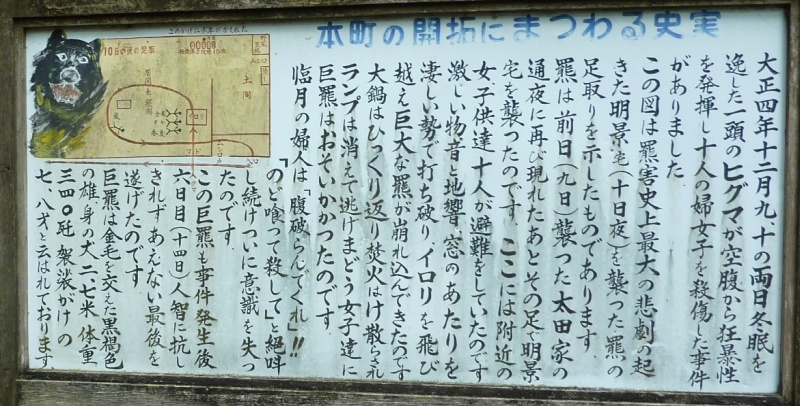 本町の開拓にまつわる史実
大正四年十二月九、十の両日冬眠を
逸した一頭のヒグマが空腹から狂暴性
を発揮し十人の婦女子を殺傷した事件
がありました
この図は羆害史上最大の悲劇の起
きた明景宅(十日夜)を襲った羆の
足取りを示したものであります
羆は前日(九日)襲った太田家の
通夜に再び現れたあとその足で明景
宅を襲ったのです ここには附近の
女子供達十人が避難をしていたのです
激しい物音と地響、窓のあたりを
凄しい勢で打ち破り、イロリを飛び
越え巨大な羆が崩れ込んできたのです
大鍋はひっくり返り焚火はけ散らされ
ランプは消えて逃げまどう女子達に
巨羆はおそいかかつたのです
臨月の婦人は「腹破らんでくれ」!!
「のど喰って殺して」と絶叫
し続けついに意識を失っ
たのです
この巨羆も事件発生後
六日目(十四日)人智に抗し
きれずあえない最後を
遂げたのです
巨羆は金毛を交えた黒褐色
の雄、身の丈二.七米 体重
三四〇瓩 袈裟がけの
七、八才と云はれております
10日の夜の足取
土間
居間兼寝間
イロリ
窓